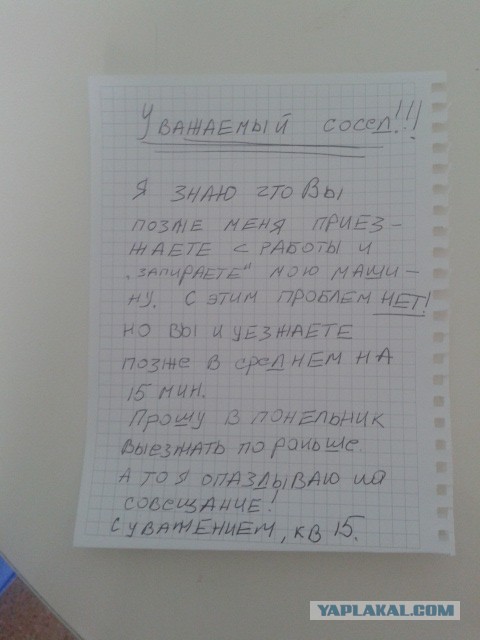 Уважаемый сосед!!!
Я знаю что Вы
позже меня приез-
жаете с работы и
"запираете" мою маши-
ну. С этим проблем нет!
Но вы и уезжаете
позже в среднем на
15 мин.
Прошу в понельник
выезжать по раньше.
А то я опаздываю на
совещание!
С уважением, кв 15.
YAPLAKAL.COM